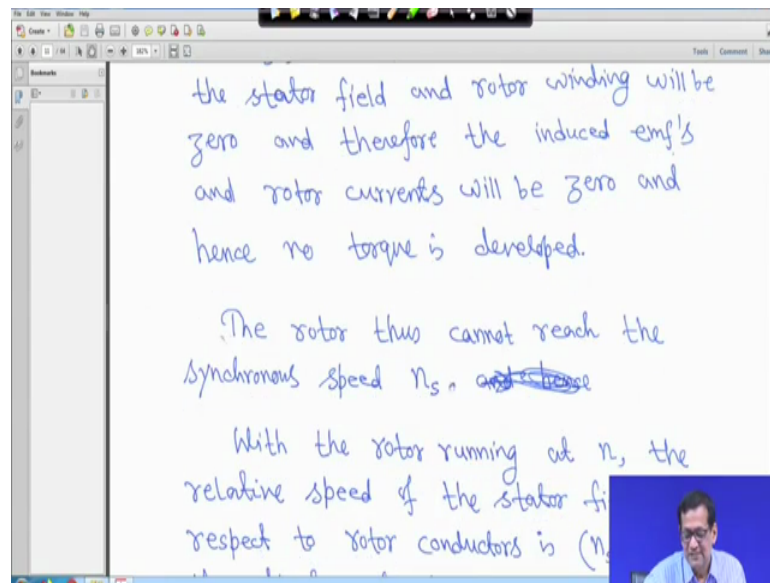 File Edit View Window Help
Create
11 / 44
182%
Tools Comment
Bookmarks
the stator field and rotor winding will be
zero and therefore the induced emf's
and rotor currents will be zero and
hence no torque is developed.
The rotor thus cannot reach the
synchronous speed ns.
With the rotor running at n, the
relative speed of the stator fi
respect to rotor conductors is (n